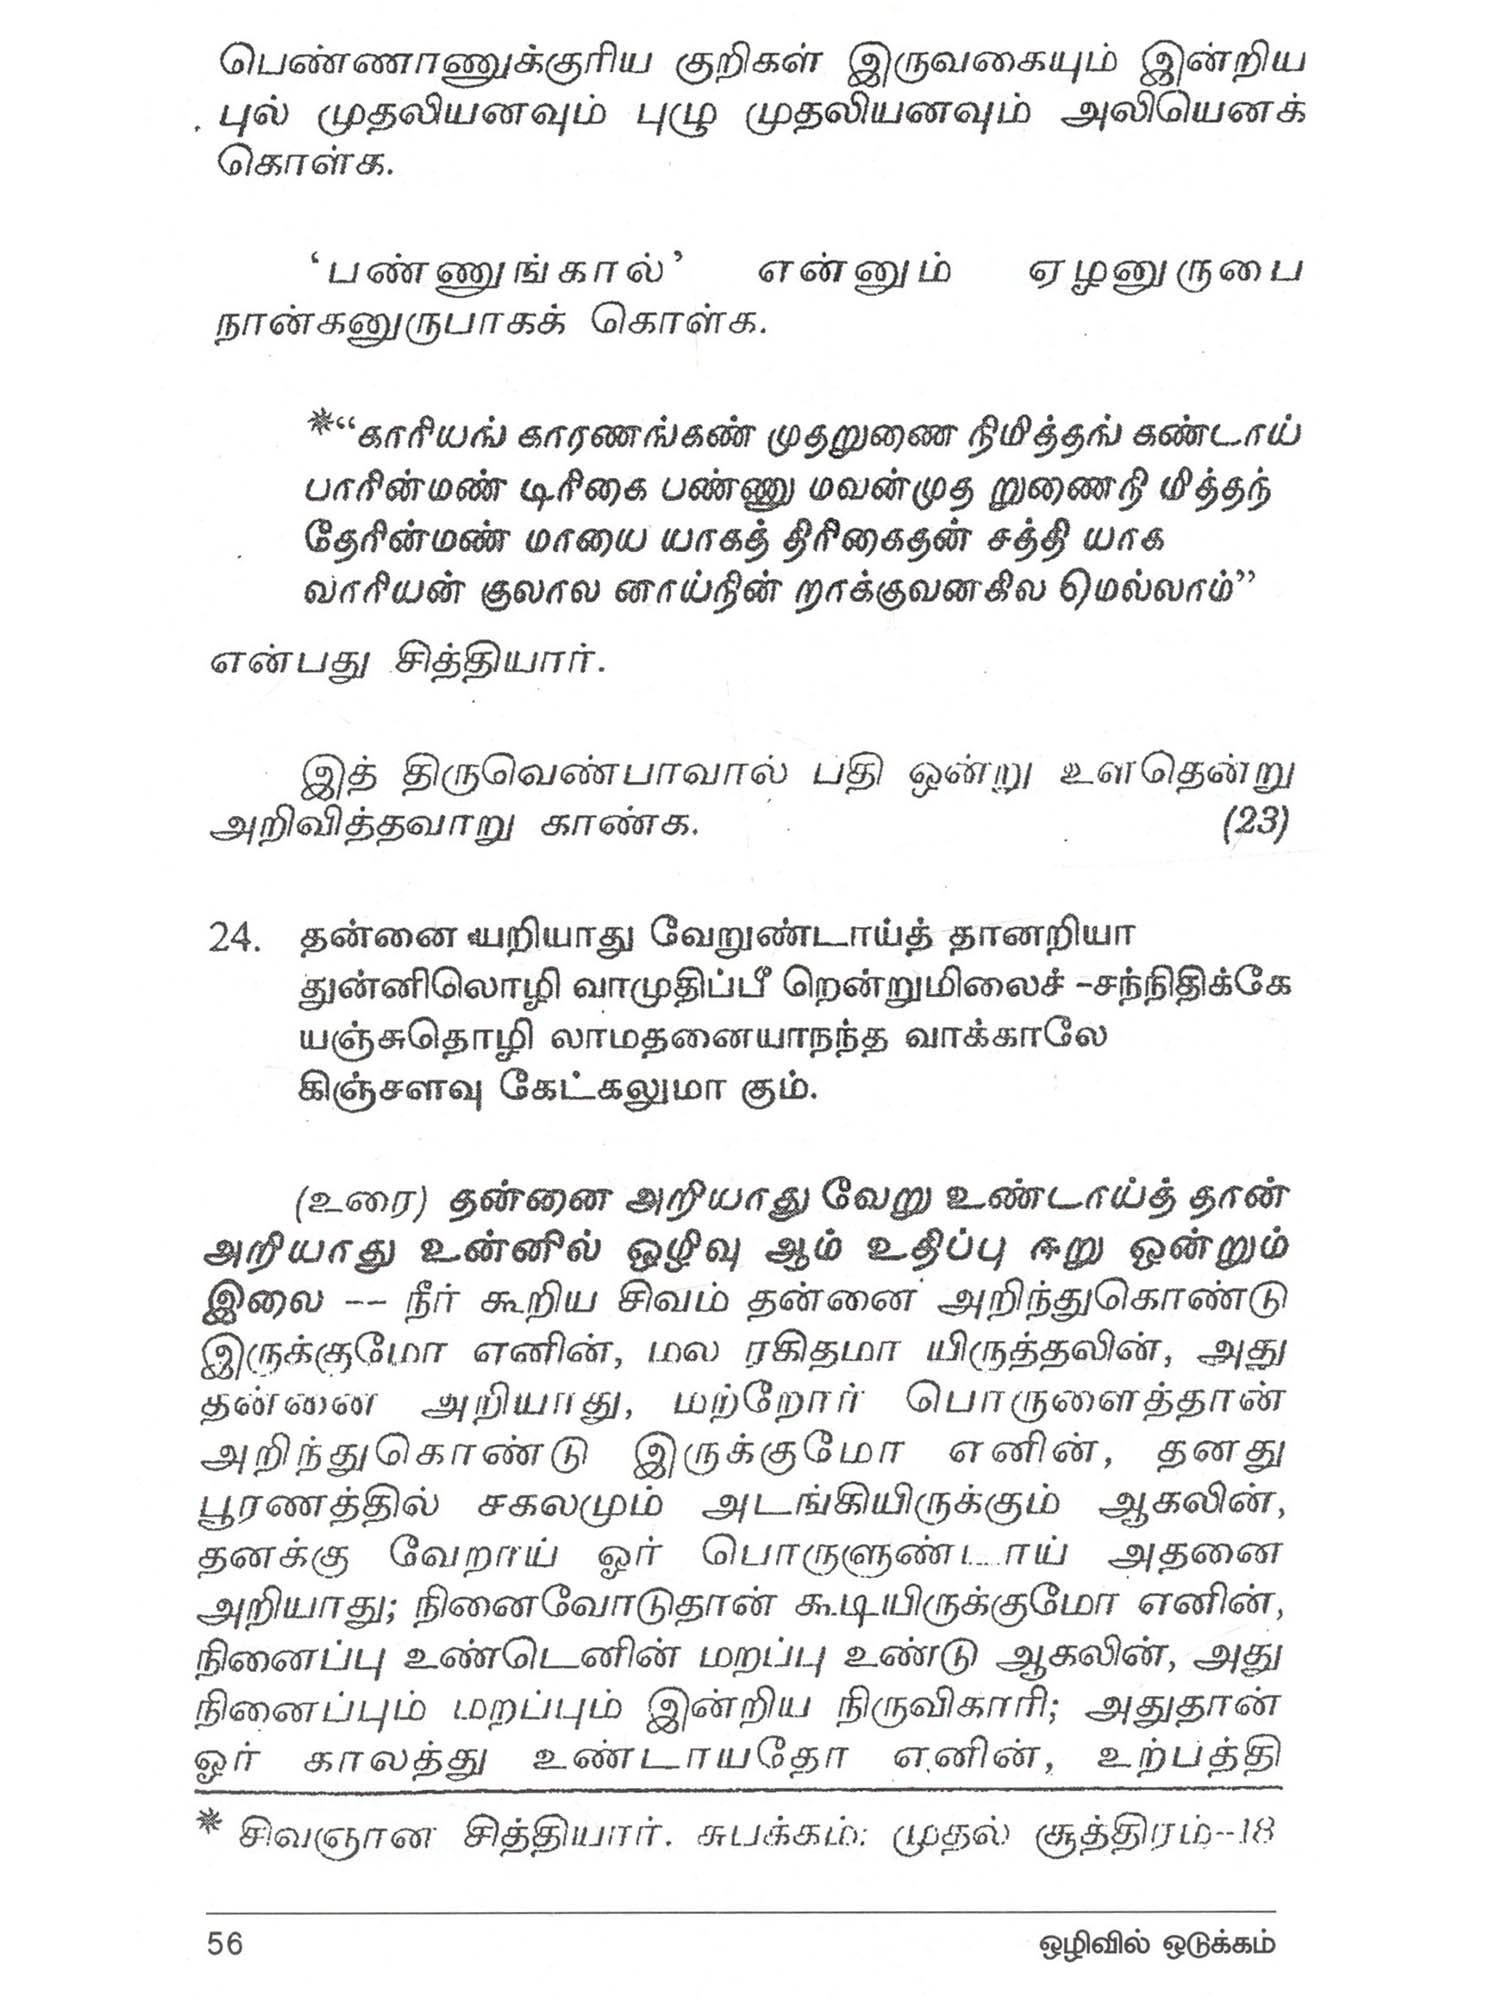 பெண்ணாணுக்குரிய குறிகள் இருவகையும் இன்றிய
புல் முதலியனவும் புழு முதலியனவும் அலியெனக்
கொள்க.
‘பண்ணுங்கால்’ என்னும் ஏழனுருபை
நான்கனுருபாகக் கொள்க.
*“காரியங் காரணங்கண் முதறுணை நிமித்தங் கண்டாய்
பாரின்மண் டிரிகை பண்ணு மவன்முத றுணைநி மித்தந்
தேரின்மண் மாயை யாகத் திரிகைதன் சத்தி யாக
வாரியன் குலால னாய்நின் றாக்குவனகில மெல்லாம்”
என்பது சித்தியார்.
இத் திருவெண்பாவால் பதி ஒன்று உளதென்று
அறிவித்தவாறு காண்க. (23)
24. தன்னை யறியாது வேறுண்டாய்த் தானறியா
துன்னிலொழி வாமுதிப்பீ றென்றுமிலைச் -சந்நிதிக்கே
யஞ்சுதொழி லாமதனையாநந்த வாக்காலே
கிஞ்சளவு கேட்கலுமா கும்.
(உரை) தன்னை அறியாது வேறு உண்டாய்த் தான்
அறியாது உன்னில் ஒழிவு ஆம் உதிப்பு ஈறு ஒன்றும்
இலை -- நீர் கூறிய சிவம் தன்னை அறிந்துகொண்டு
இருக்குமோ எனின், மல ரகிதமா யிருத்தலின், அது
தன்னை அறியாது, மற்றோர் பொருளைத்தான்
அறிந்துகொண்டு இருக்குமோ எனின், தனது
பூரணத்தில் சகலமும் அடங்கியிருக்கும் ஆகலின்,
தனக்கு வேறாய் ஓர் பொருளுண்டாய் அதனை
அறியாது; நினைவோடுதான் கூடியிருக்குமோ எனின்,
நினைப்பு உண்டெனின் மறப்பு உண்டு ஆகலின், அது
நினைப்பும் மறப்பும் இன்றிய நிருவிகாரி; அதுதான்
ஓர் காலத்து உண்டாயதோ எனின், உற்பத்தி
* சிவஞான சித்தியார். சுபக்கம்: முதல் சூத்திரம்--18
56 ஒழிவில் ஒடுக்கம்